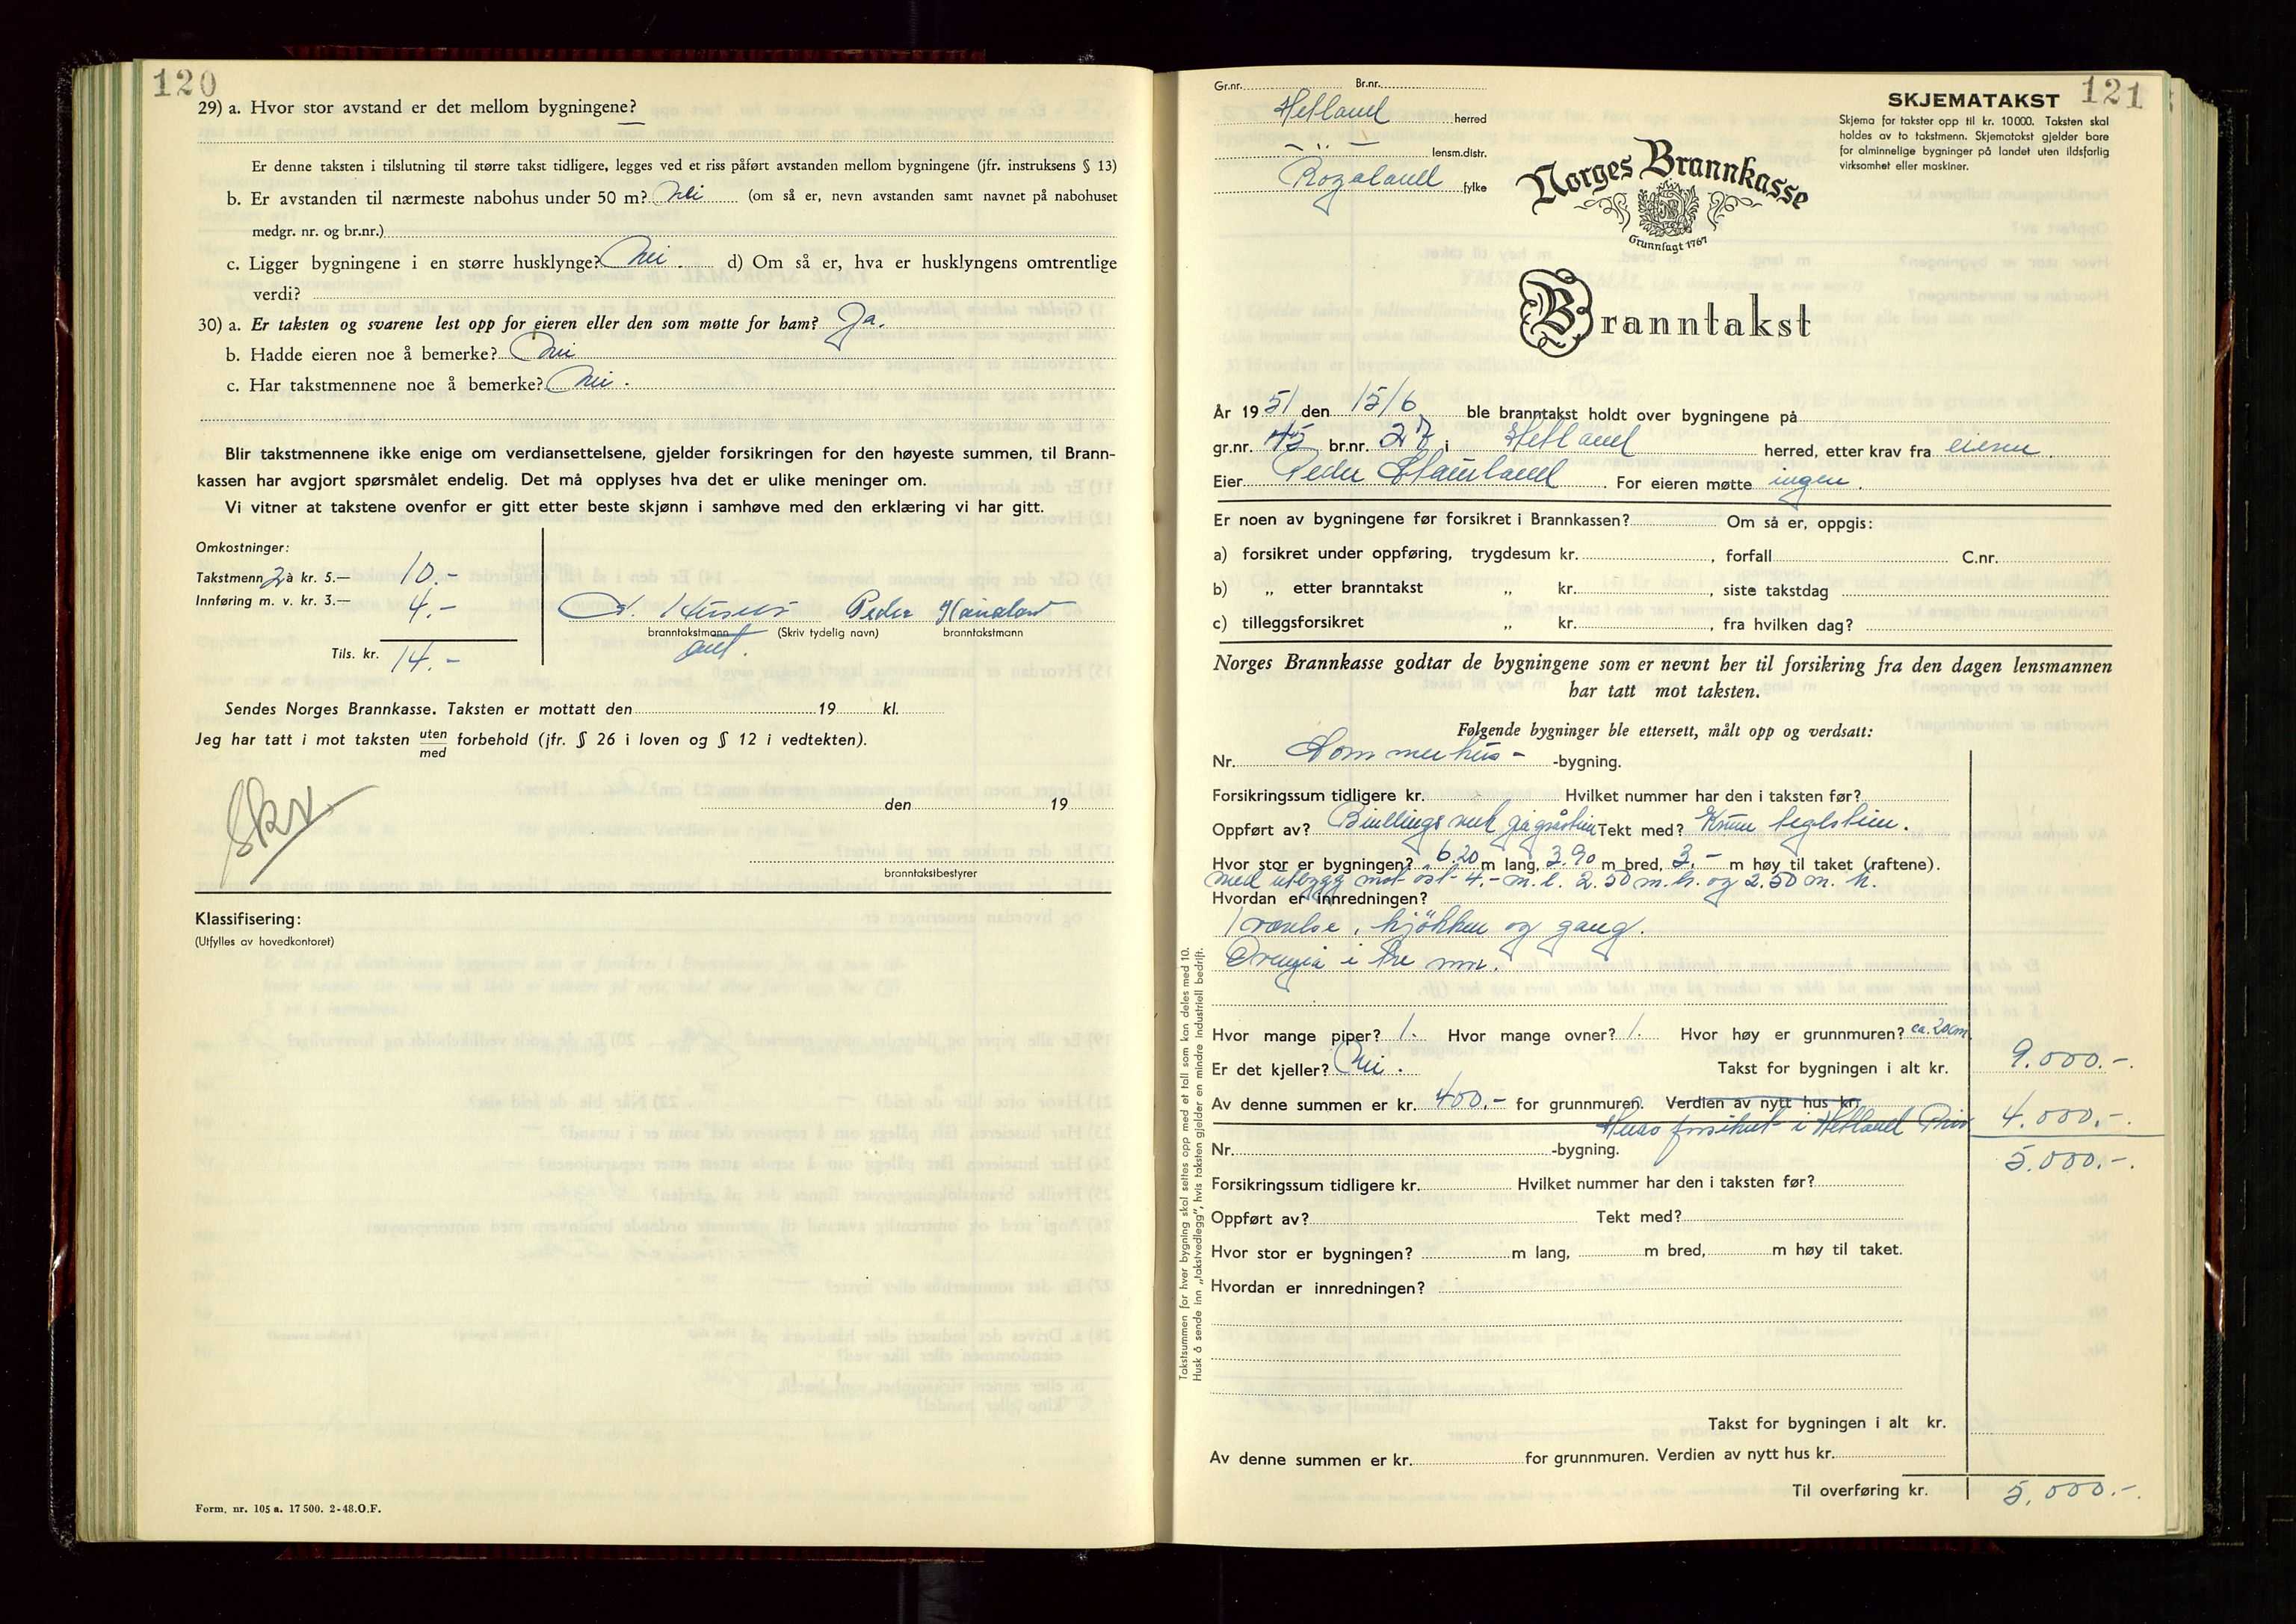 120
29) a. Hvor stor avstand er det mellom bygningene?
Er denne taksten i tilslutning til større takst tidligere, legges ved et riss påført avstanden mellom bygningene (jfr. instruksens § 13)
b. Er avstanden til nærmeste nabohus under 50 m? Nei (om så er, nevn avstanden samt navnet på nabohuset
medgr. nr. og br.nr.)
c. Ligger bygningene i en større husklynge? Nei. d) Om så er, hva er husklyngens omtrentlige
verdi?
30) a. Er taksten og svarene lest opp for eieren eller den som møtte for ham? Ja.
b. Hadde eieren noe å bemerke? Nei
c. Har takstmennene noe å bemerke? Nei.
Blir takstmennene ikke enige om verdiansettelsene, gjelder forsikringen for den høyeste summen, til Brann-
kassen har avgjort spørsmålet endelig. Det må opplyses hva det er ulike meninger om.
Vi vitner at takstene ovenfor er gitt etter beste skjønn i samhøve med den erklæring vi har gitt.
Omkostninger:
Takstmenn 2 à kr. 5.— 10.-
Innføring m. v. kr. 3.— 4.-
Tils. kr. 14.-
Peder
branntakstmann (Skriv tydelig navn) branntakstmann
Sendes Norges Brannkasse. Taksten er mottatt den 19 kl.
Jeg har tatt i mot taksten uten/med forbehold (jfr. § 26 i loven og § 12 i vedtekten).
Skr.
den 19
branntakstbestyrer
Klassifisering:
(Utfylles av hovedkontoret)
Form. nr. 105 a. 17 500. 2-48. O.F.
121
Gr.nr. Br.nr.
Hetland herred
- " - lensm.distr.
Rogaland fylke
SKJEMATAKST
Skjema for takster opp til kr. 10000. Taksten skal
holdes av to takstmenn. Skjematakst gjelder bare
for alminnelige bygninger på landet uten ildsfarlig
virksomhet eller maskiner.
Norges Brannkasse
Grunnlagt 1767
Branntakst
År 1951 den 15/6 ble branntakst holdt over bygningene på
gr.nr. 45 br.nr. 27 i Hetland herred, etter krav fra eieren.
Eier Peder For eieren møtte ingen.
Er noen av bygningene før forsikret i Brannkassen? Om så er, oppgis:
a) forsikret under oppføring, trygdesum kr. , forfall C.nr.
b) „ etter branntakst „ kr. , siste takstdag
c) tilleggsforsikret „ kr. , fra hvilken dag?
Norges Brannkasse godtar de bygningene som er nevnt her til forsikring fra den dagen lensmannen
har tatt mot taksten.
Følgende bygninger ble ettersett, målt opp og verdsatt:
Nr. Sommerhus- -bygning.
Forsikringssum tidligere kr. Hvilket nummer har den i taksten før?
Oppført av? Bindingsverk på gråstein Tekt med? Krum teglstein.
Hvor stor er bygningen? 6.20 m lang, 3.90 m bred, 3.- m høy til taket (raftene).
med utbygg mot øst 4.- m. l. 2.50 m. br. og 2.50 m. h.
Hvordan er innredningen?
1 værelse, kjøkken og gang.
i tre
Hvor mange piper? 1. Hvor mange ovner? 1. Hvor høy er grunnmuren? ca. 20cm.
Er det kjeller? Nei. Takst for bygningen i alt kr. 9.000.-
Av denne summen er kr. 400.- for grunnmuren. Verdien av nytt hus kr.
forsikret i Hetland 4.000.-
Nr. -bygning. 5.000.-
Forsikringssum tidligere kr. Hvilket nummer har den i taksten før?
Oppført av? Tekt med?
Hvor stor er bygningen? m lang, m bred, m høy til taket.
Hvordan er innredningen?
Takst for bygningen i alt kr.
Av denne summen er kr. for grunnmuren. Verdien av nytt hus kr.
Til overføring kr. 5.000.-
Takstsummen for hver bygning skal settes opp med et tall som kan deles med 10.
Husk å sende inn „takstvedlegg", hvis taksten gjelder en mindre industriell bedrift.